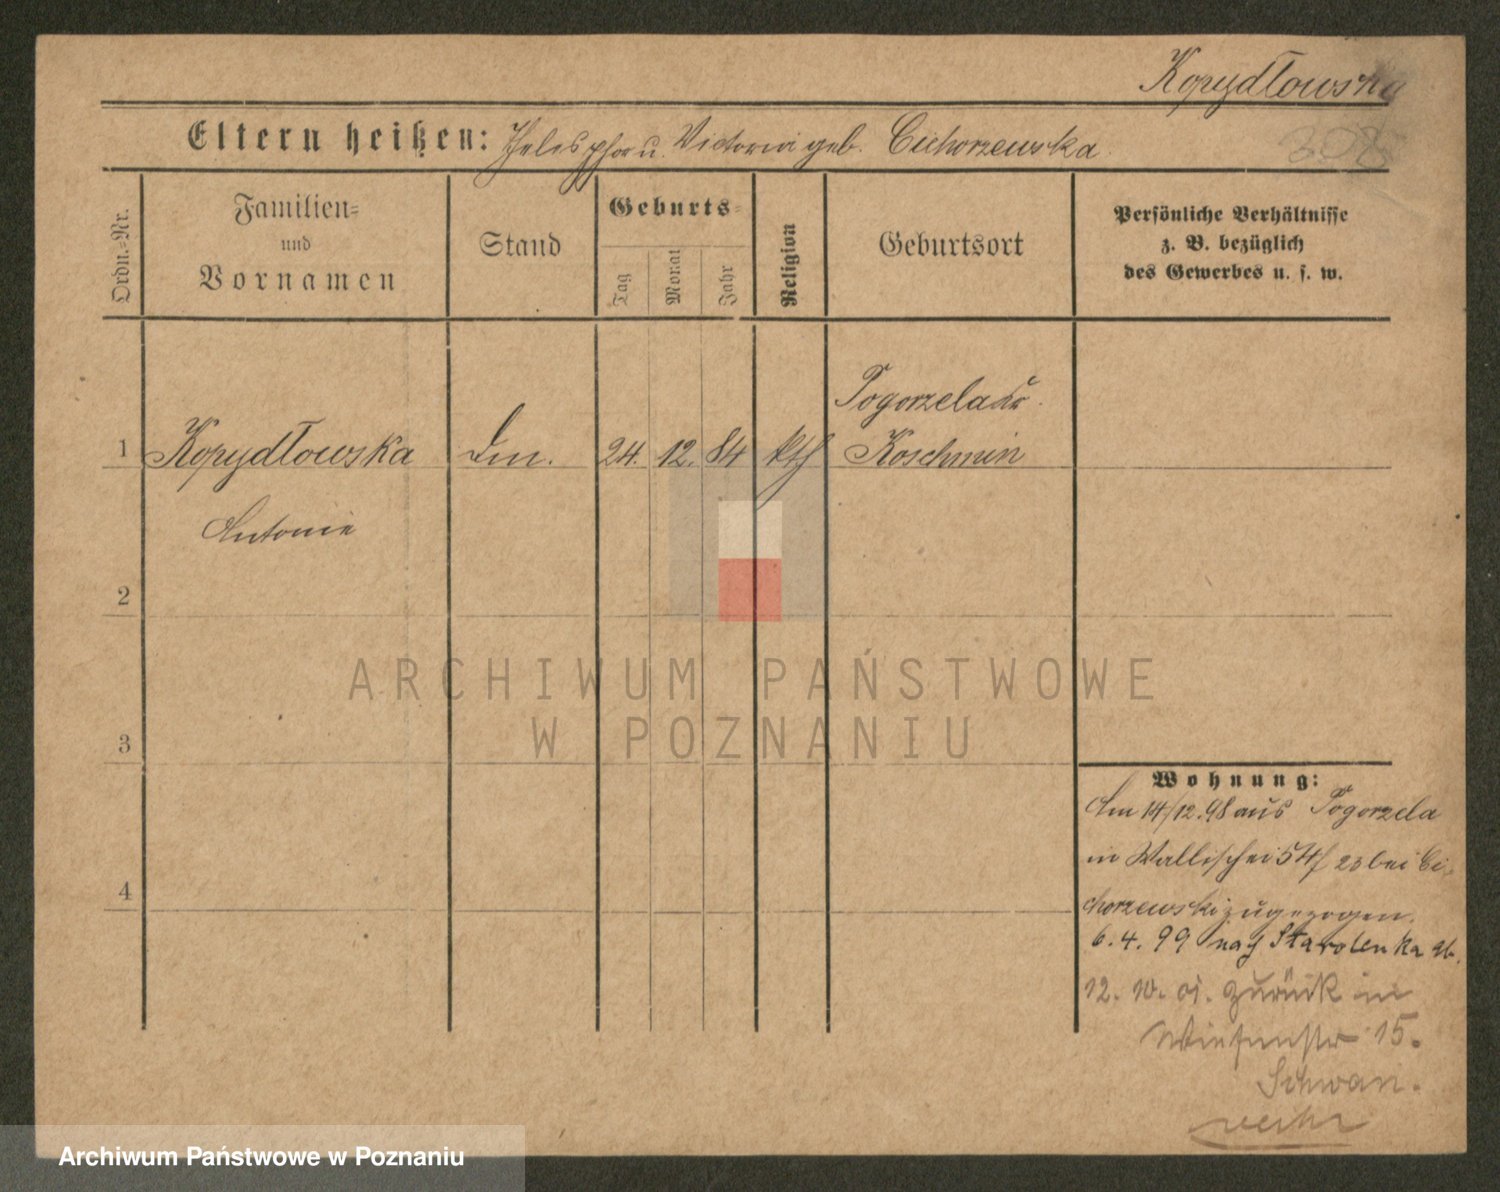 Kopydłowska
308
Eltern heißen: Thelesphor u. Victoria geb. Cichorzewska
Ordn.=Nr.
Familien=
und
Vornamen
Stand
Geburts=
Tag
Monat
Jahr
Religion
Geburtsort
Persönliche Verhältnisse
z. B. bezüglich
des Gewerbes u. s. w.
Pogorzela Kr.
1 Kopydłowska 24. 12. 84 kth Koschmin
Antonie
2
ARCHIWUM PAŃSTWOWE
W POZNANIU
3
4
Wohnung:
Am 14/12.98 aus Pogorzela
in Wallischei 54/ 23 bei Ci-
chorzewski zugezogen.
6. 4. 99 nach Starolenka ab.
12. 10. 01. zurück in
Wiesenstr 15.
Archiwum Państwowe w Poznaniu